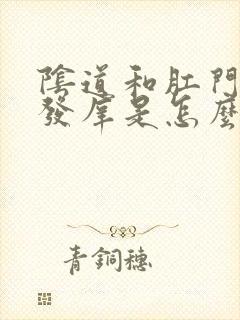 陰道和肛門
發庠是怎麼
青銅穗